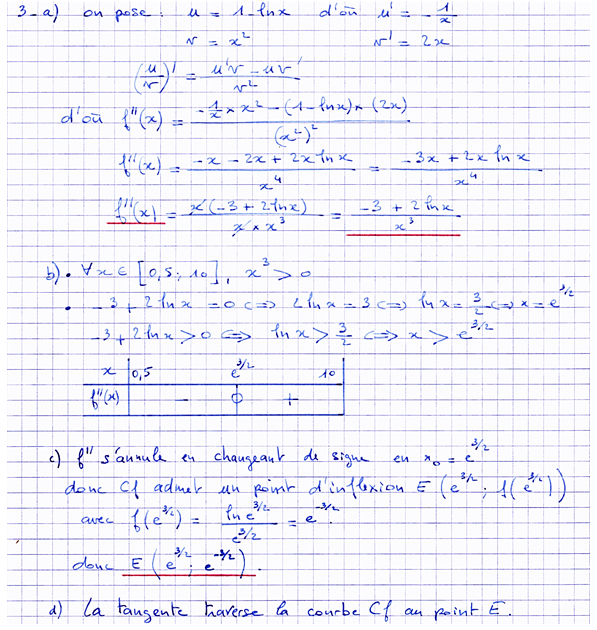 3-a) on pose : u = 1-lnx d'où u' = -1/x
v = x² v' = 2x
(u/v)' = (u'v - uv')/v²
d'où f''(x) = (-1/x × x² - (1-lnx) × (2x))/(x²)²
f''(x) = (-x - 2x + 2x lnx)/x⁴ = (-3x + 2x lnx)/x⁴
f''(x) = x(-3 + 2lnx)/(x × x³) = (-3 + 2lnx)/x³
b) • ∀x ∈ [0,5 ; 10], x³ > 0
• -3 + 2lnx = 0 ⟺ 2lnx = 3 ⟺ lnx = 3/2 ⟺ x = e^(3/2)
-3 + 2lnx > 0 ⟺ lnx > 3/2 ⟺ x > e^(3/2)
x 0,5 e^(3/2) 10
f''(x) - 0 +
c) f'' s'annule en changeant de signe en x₀ = e^(3/2)
donc Cf admet un point d'inflexion E (e^(3/2) ; f(e^(3/2)))
avec f(e^(3/2)) = ln e^(3/2)/e^(3/2) = e^(-3/2).
donc E (e^(3/2) ; e^(-3/2)).
d) La tangente traverse la courbe Cf au point E.